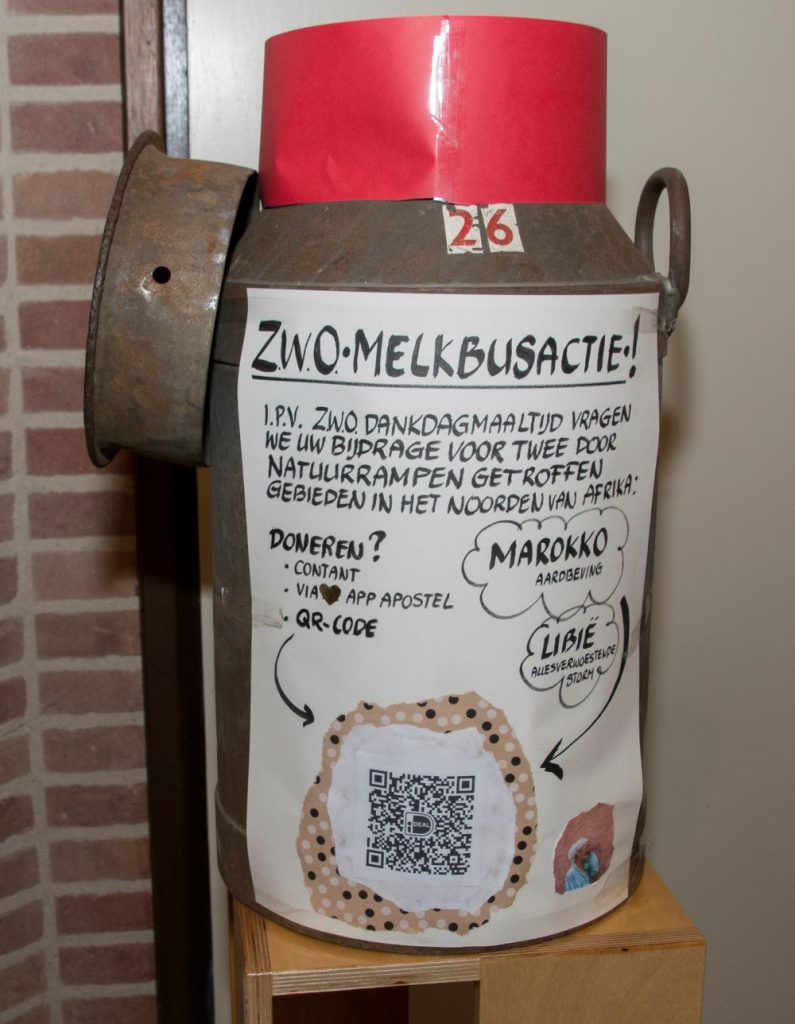 26
Z.W.O. MELKBUSACTIE!
I.P.V. Z.W.O. DANKDAGMAALTIJD VRAGEN
WE UW BIJDRAGE VOOR TWEE DOOR
NATUURRAMPEN GETROFFEN
GEBIEDEN IN HET NOORDEN VAN AFRIKA:
DONEREN?
• CONTANT
• VIA APP APOSTEL
• QR-CODE
MAROKKO
AARDBEVING
LIBIË
ALLESVERWOESTENDE
STORM
iDEAL